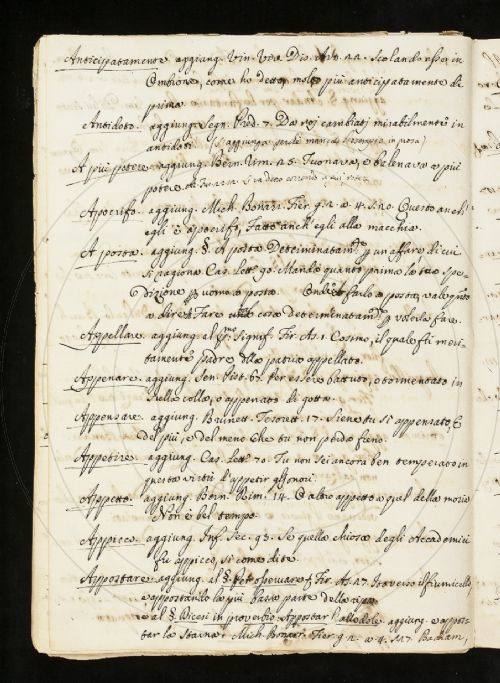 Anticipatamente. aggiung. Vin. Via Dis. Art. 22. Scolando esso, in
Embrione, come ho detto, molto più anticipatamente di
prima.
Antidoto. aggiung. Segn. Pred. 7. Da voi cambiatj mirabilmente in
antidoti
A più potere. aggiung. Bern. Um. 25. Tuonava, e balenava a più
potere.
Apocrifo. aggiung. Mich. Bonarr. Fier. g. 2. a 4. Questo anch'
egli è apocrifo, fatto anch'egli alla macchia.
A posta. aggiung. §. A posta Determinatam.te un affare di cui
si ragiona Cas. Lett. 90. Mando quanto prima la tua spe-
dizione uomo a posta. farlo a posta, vale
o dire o fare cosa determinatam.te volerlo fare.
Appellare. aggiung. al p.mo signif. Fir. As. 1. Cosimo, il quale fu meri-
tamente padre della patria appellato.
Appenare. aggiung. Sen. Pist. 67. Per essere battuto, o tormentato in
nella colla, o appenato di gotta.
Appensare. aggiung. Brunett. Tesorett. 17. Siene tu sì appensato, E
del più, e del meno che tu non perda fieno.
Appetire. aggiung. Cas. Lett. 70. Tu non sei ancora ben temperato in
questa virtù l'appetir gl'onori.
Appetto. aggiung. Bern. Rim. 14. O altro appetto a quel della moria
Non è bel tempo.
Appicco. aggiung. Inf. Sec. 93. Se quella chiosa degli Accademici
fu appicco, sì come dite.
Appostare. aggiung. al §. Fir. As. 27. Traverso il fiumicello,
e appostando la più bassa parte della ripa
e al §. Dicesi in proverbio Appostar l'allodole aggiung. e appos-
tar la starna. Mich. Bonarr. Fier. g. 2. a 4. s. 17.